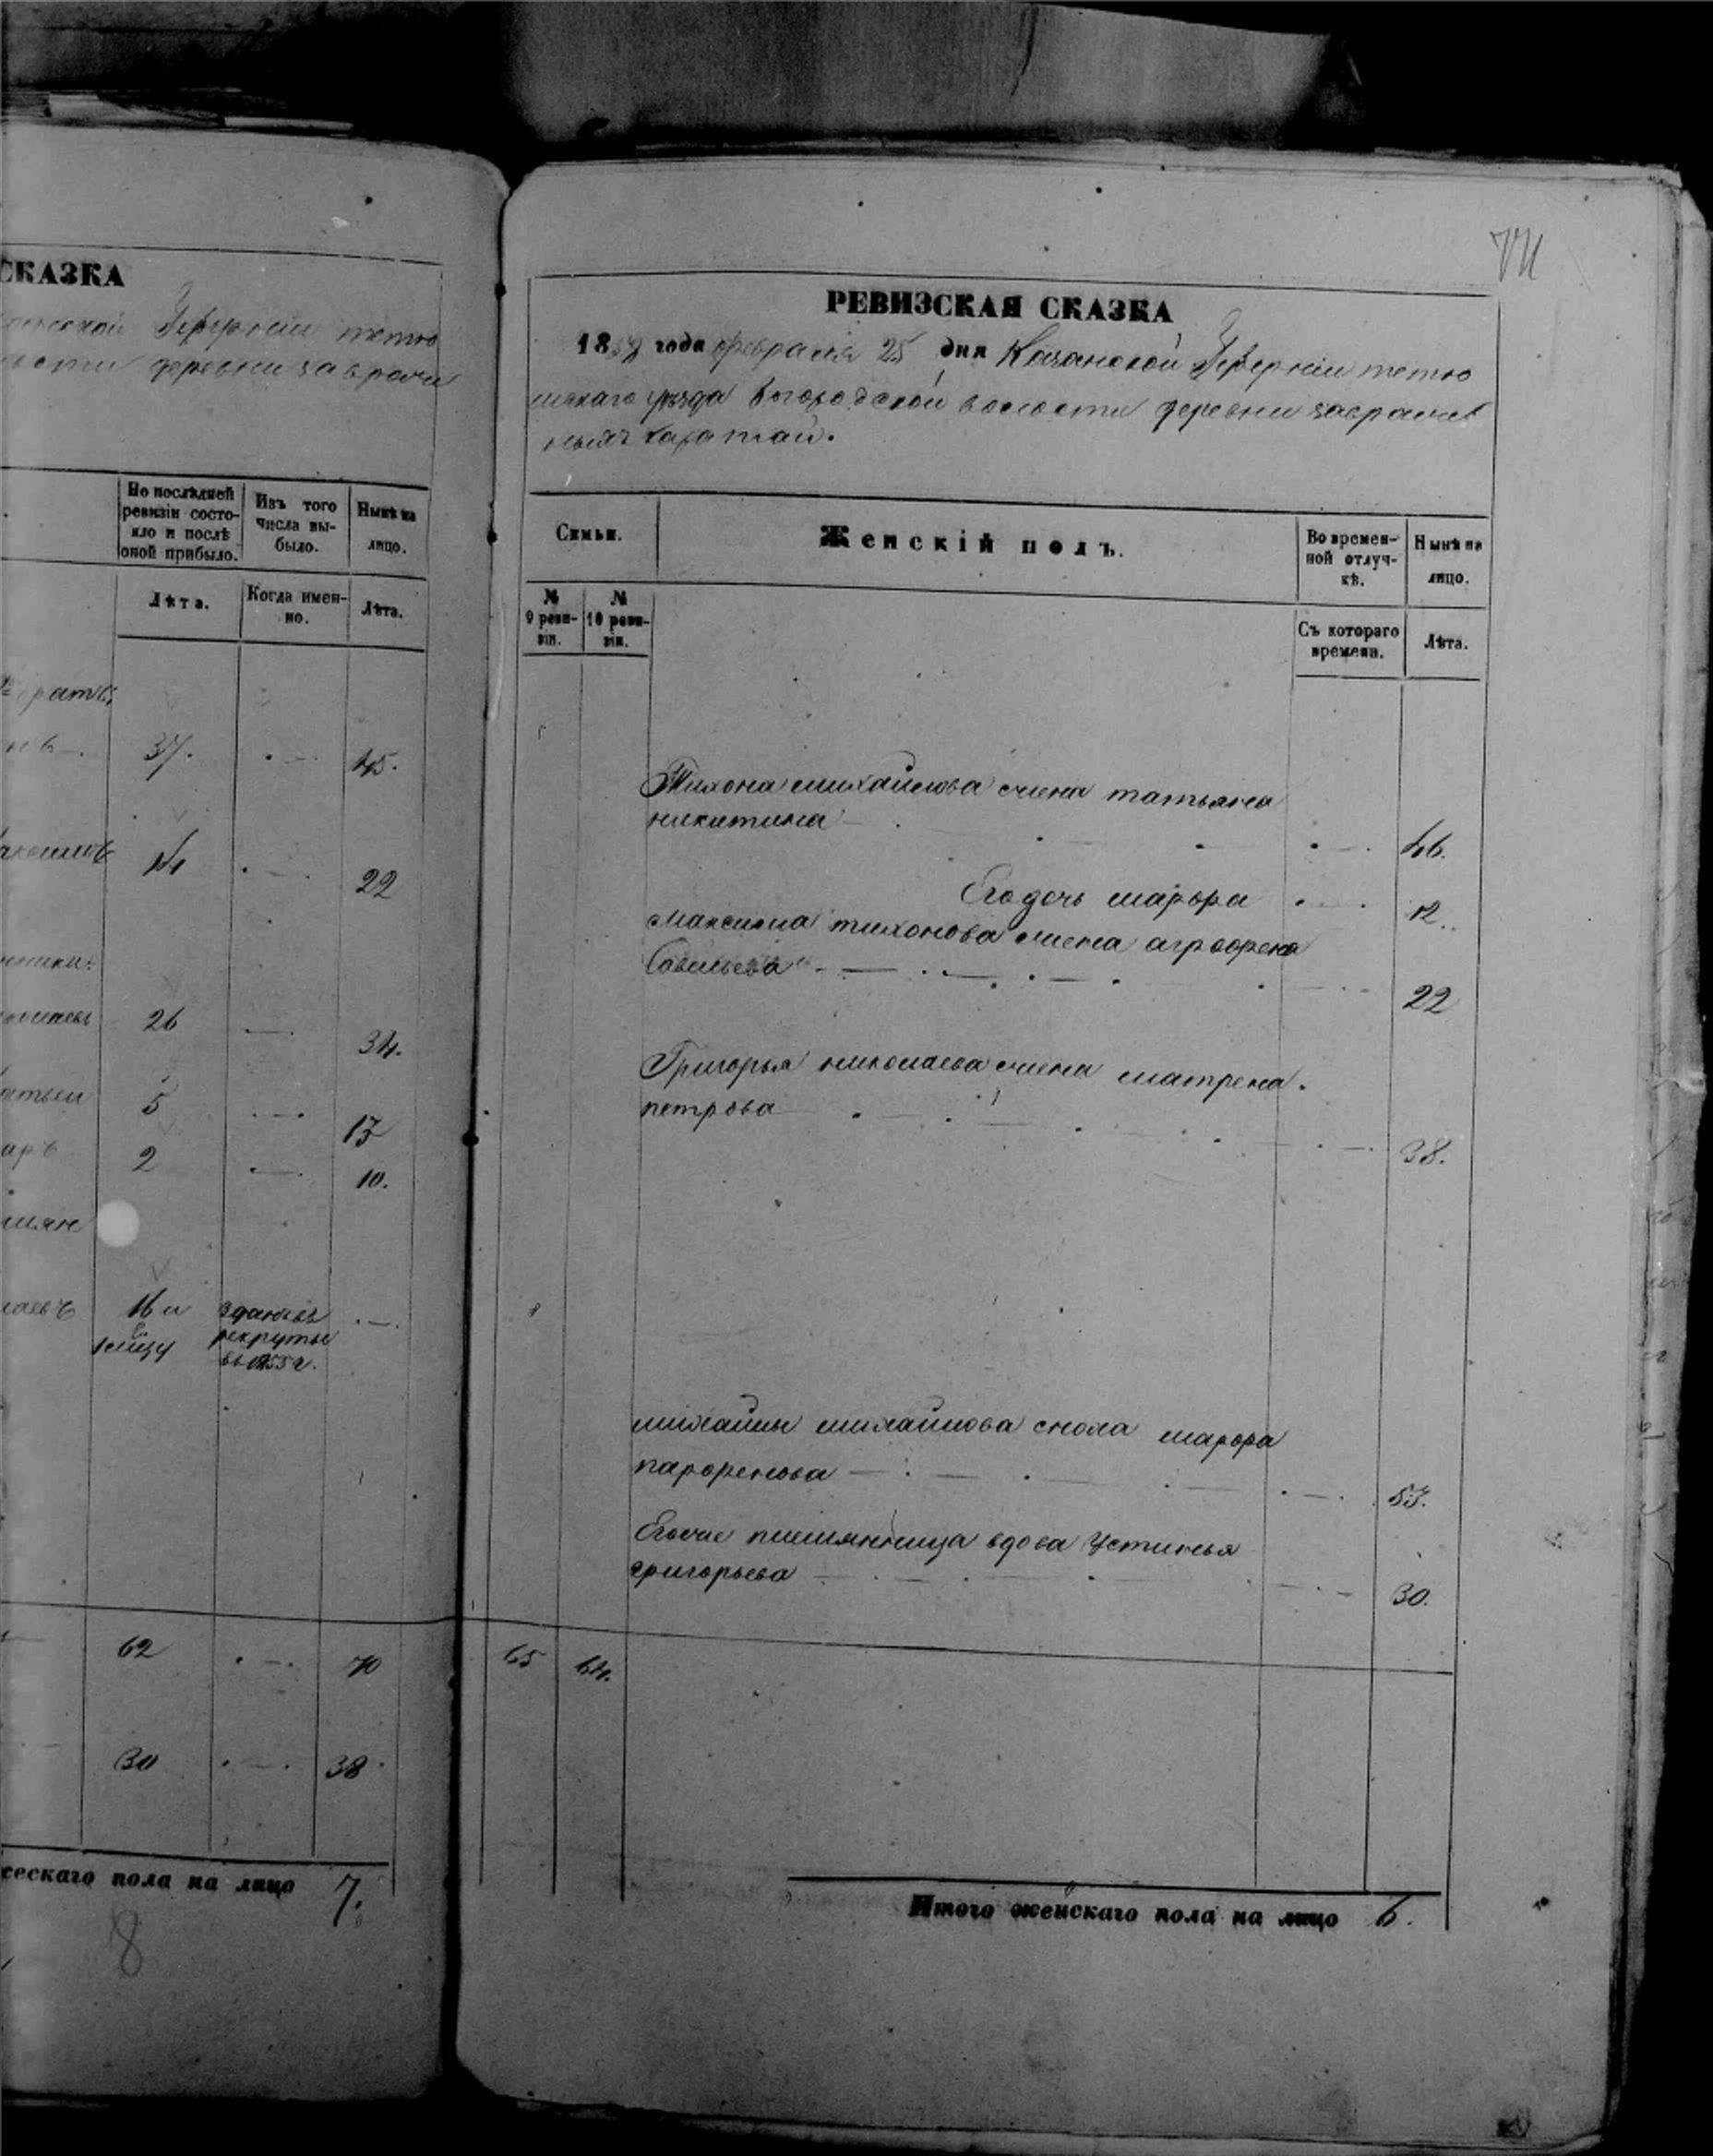 СКАЗКА
Губерніи тетю
деревни завражн
По послѣдней
ревизіи состо-
яло и послѣ
оной прибыло.
Изъ того
числа вы-
было.
Нынѣ на
лицо.
Лѣта.
Когда имен-
но.
Лѣта.
37.
45.
14
22
26
34.
5
13
2
10.
16 и
зданъ въ
рекруты
въ 1855 г.
62
70
30
38
ческаго пола на лицо 7.
8
РЕВИЗСКАЯ СКАЗКА
1858 года февраля 25 дня Казанской Губерніи тетю
шскаго уѣзда Богородской волости деревни завражн
ныхъ каратай.
Семьи.
Женскій полъ.
Во времен-
ной отлуч-
кѣ.
Нынѣ на
лицо.
№
9 реви-
зіи.
№
10 реви-
зіи.
Съ котораго
времени.
Лѣта.
Тихона михайлова жена татьяна
никитина 46.
Его дочь марфа 12.
Максима тихонова жена аграфена
Савельева 22
Григорья николаева жена матрена.
петрова 38.
михайлы михайлова жена марфа
парфенова 53.
Егоже племянница вдова Устинья
григорьева 30.
65 64.
Итого женскаго пола на лицо 6.